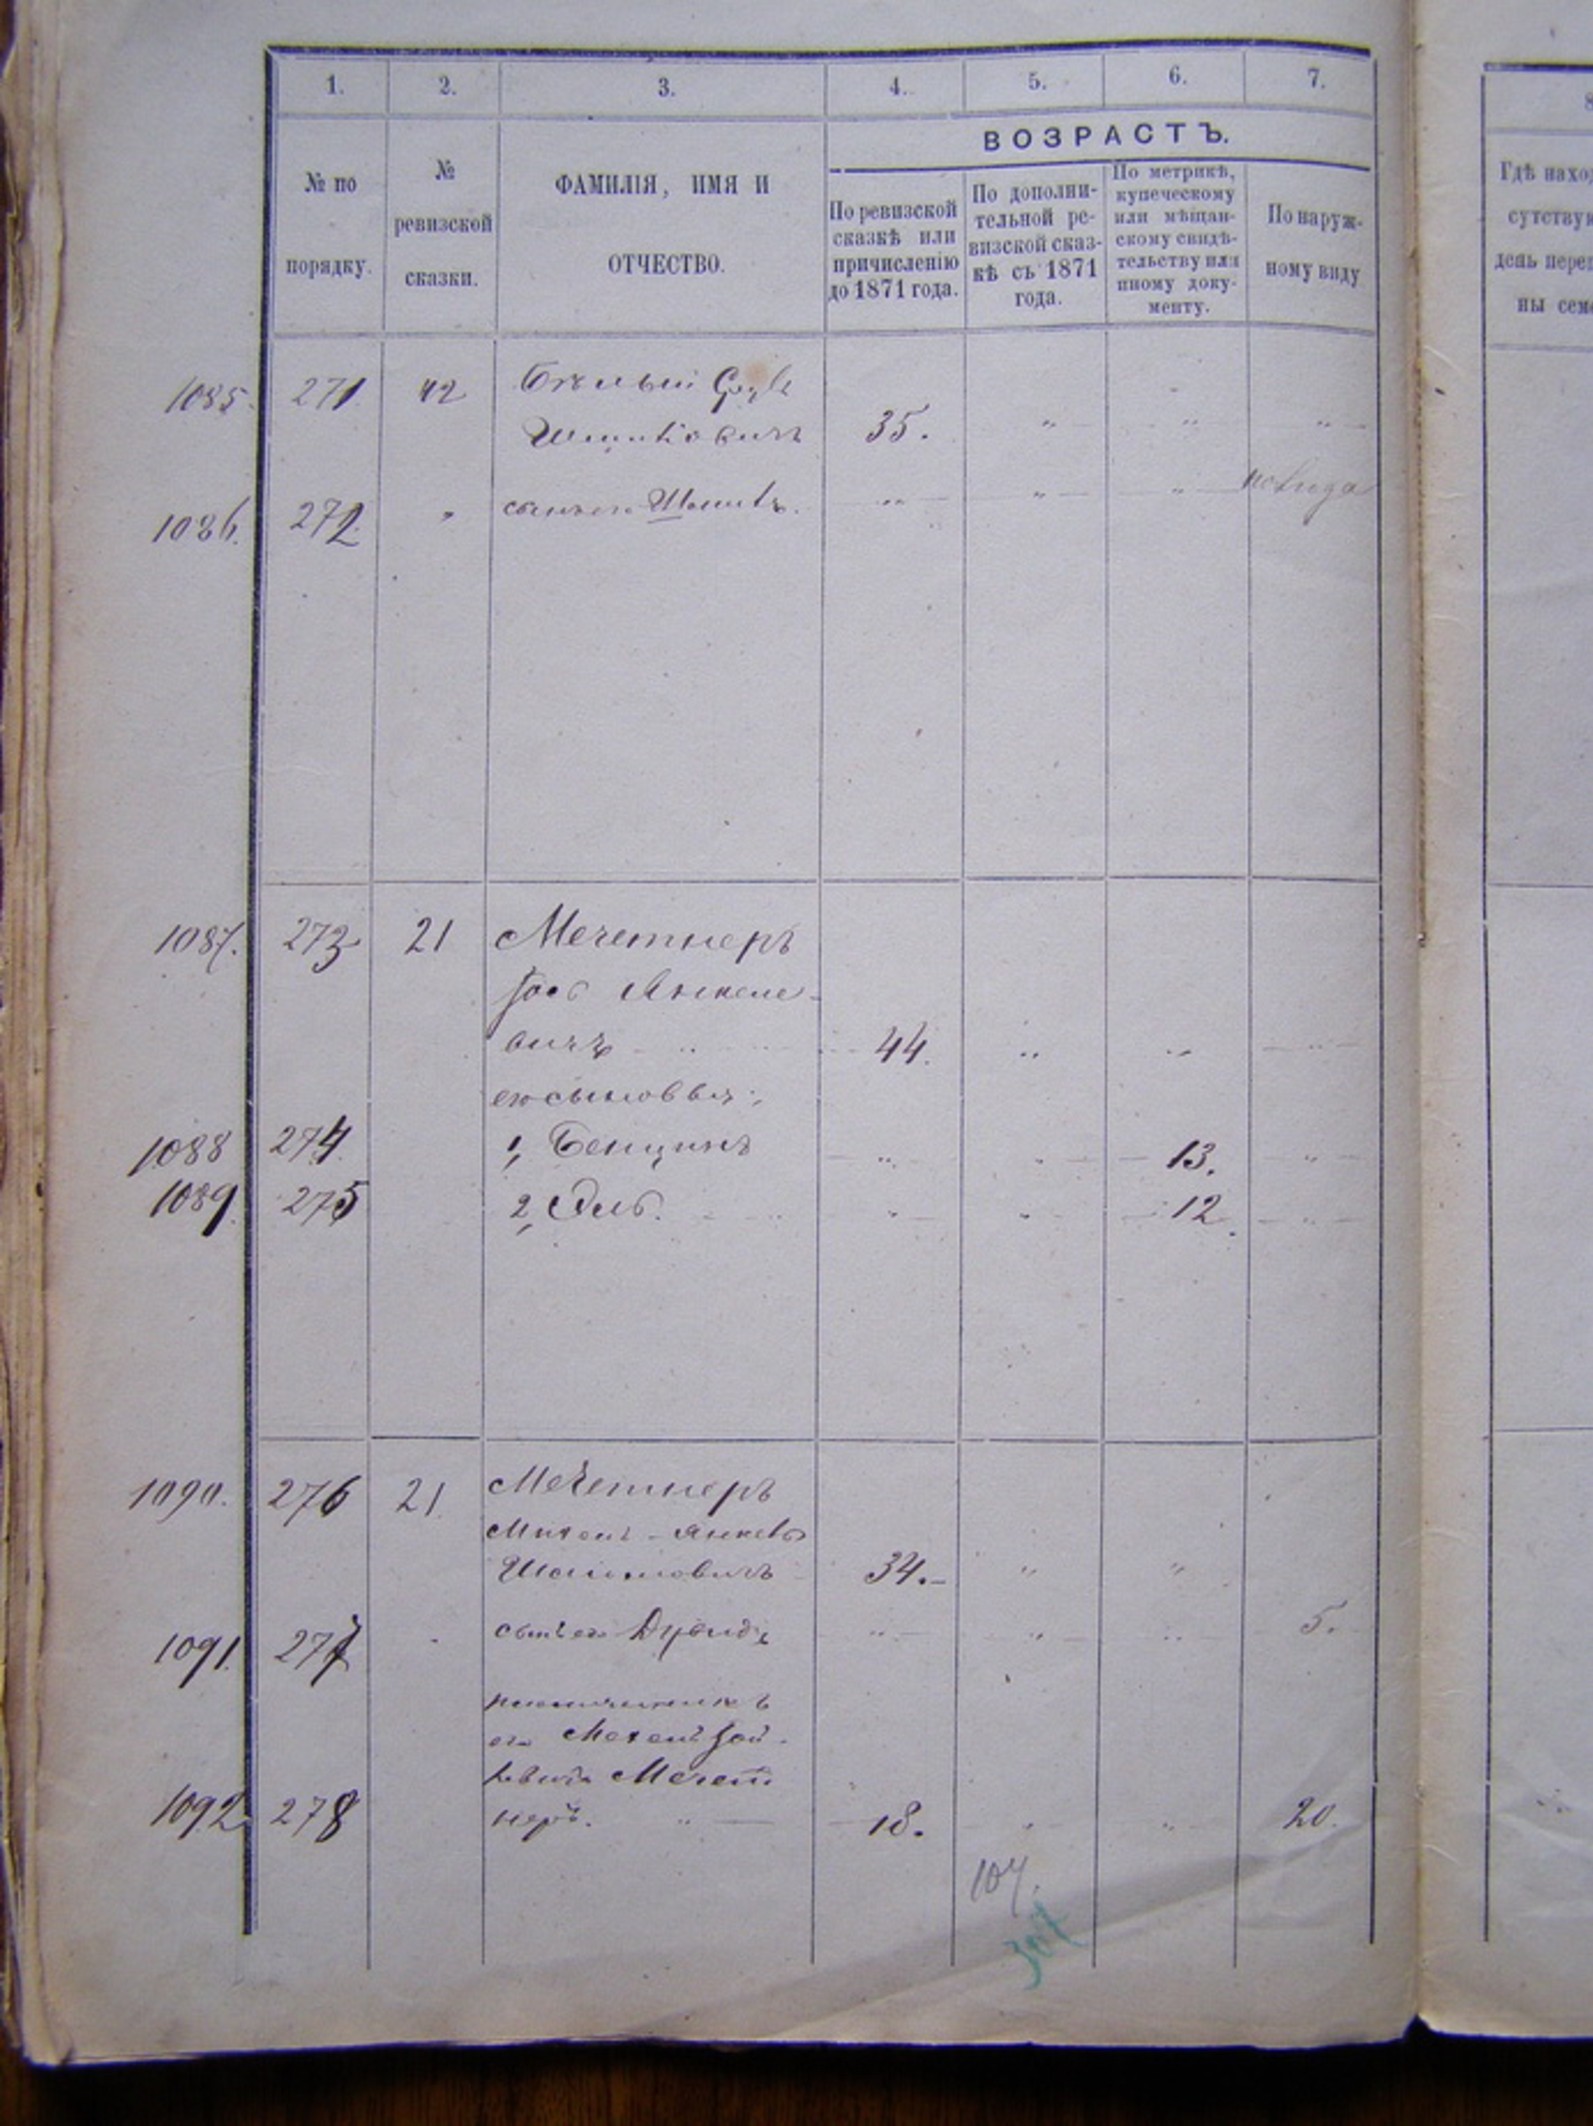 1. 2. 3. 4. 5. 6. 7.
ВОЗРАСТЪ.
№ по
порядку.
№
ревизской
сказки.
ФАМИЛІЯ, ИМЯ И
ОТЧЕСТВО.
По ревизской
сказкѣ или
причисленію
до 1871 года.
По дополни-
тельной ре-
визской сказ-
кѣ съ 1871
года.
По метрикѣ,
купеческому
или мѣщан-
скому свидѣ-
тельству или
иному доку-
менту.
По наруж-
ному виду
1085. 271 42 Бѣлый
35. " " "
1086. 272 " сынъ его " " "
1087. 273 21 Мечетнеръ
Іось Янкеле-
вичъ " 44. " " "
его сыновья:
1088 274 1, Бенціонъ " " 13. "
1089. 275 2, Эль. " " 12. "
1090. 276 21. Мечетнеръ
34. " "
1091. 277 " сынъ его " " " 5.
племянникъ
его
Мечет
1092 278 неръ. " 18. " " 20.
107.
307
8
Гдѣ наход
сутствую
день перег
ны сем